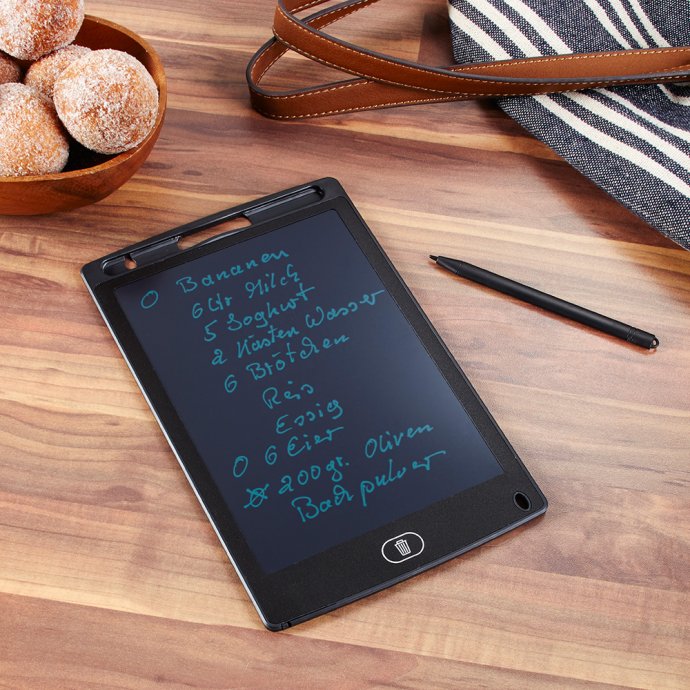 Bananen
6 Ltr Milch
5 Joghurt
2 Kasten Wasser
6 Brötchen
Reis
Essig
6 Eier
200gr. Oliven
Backpulver